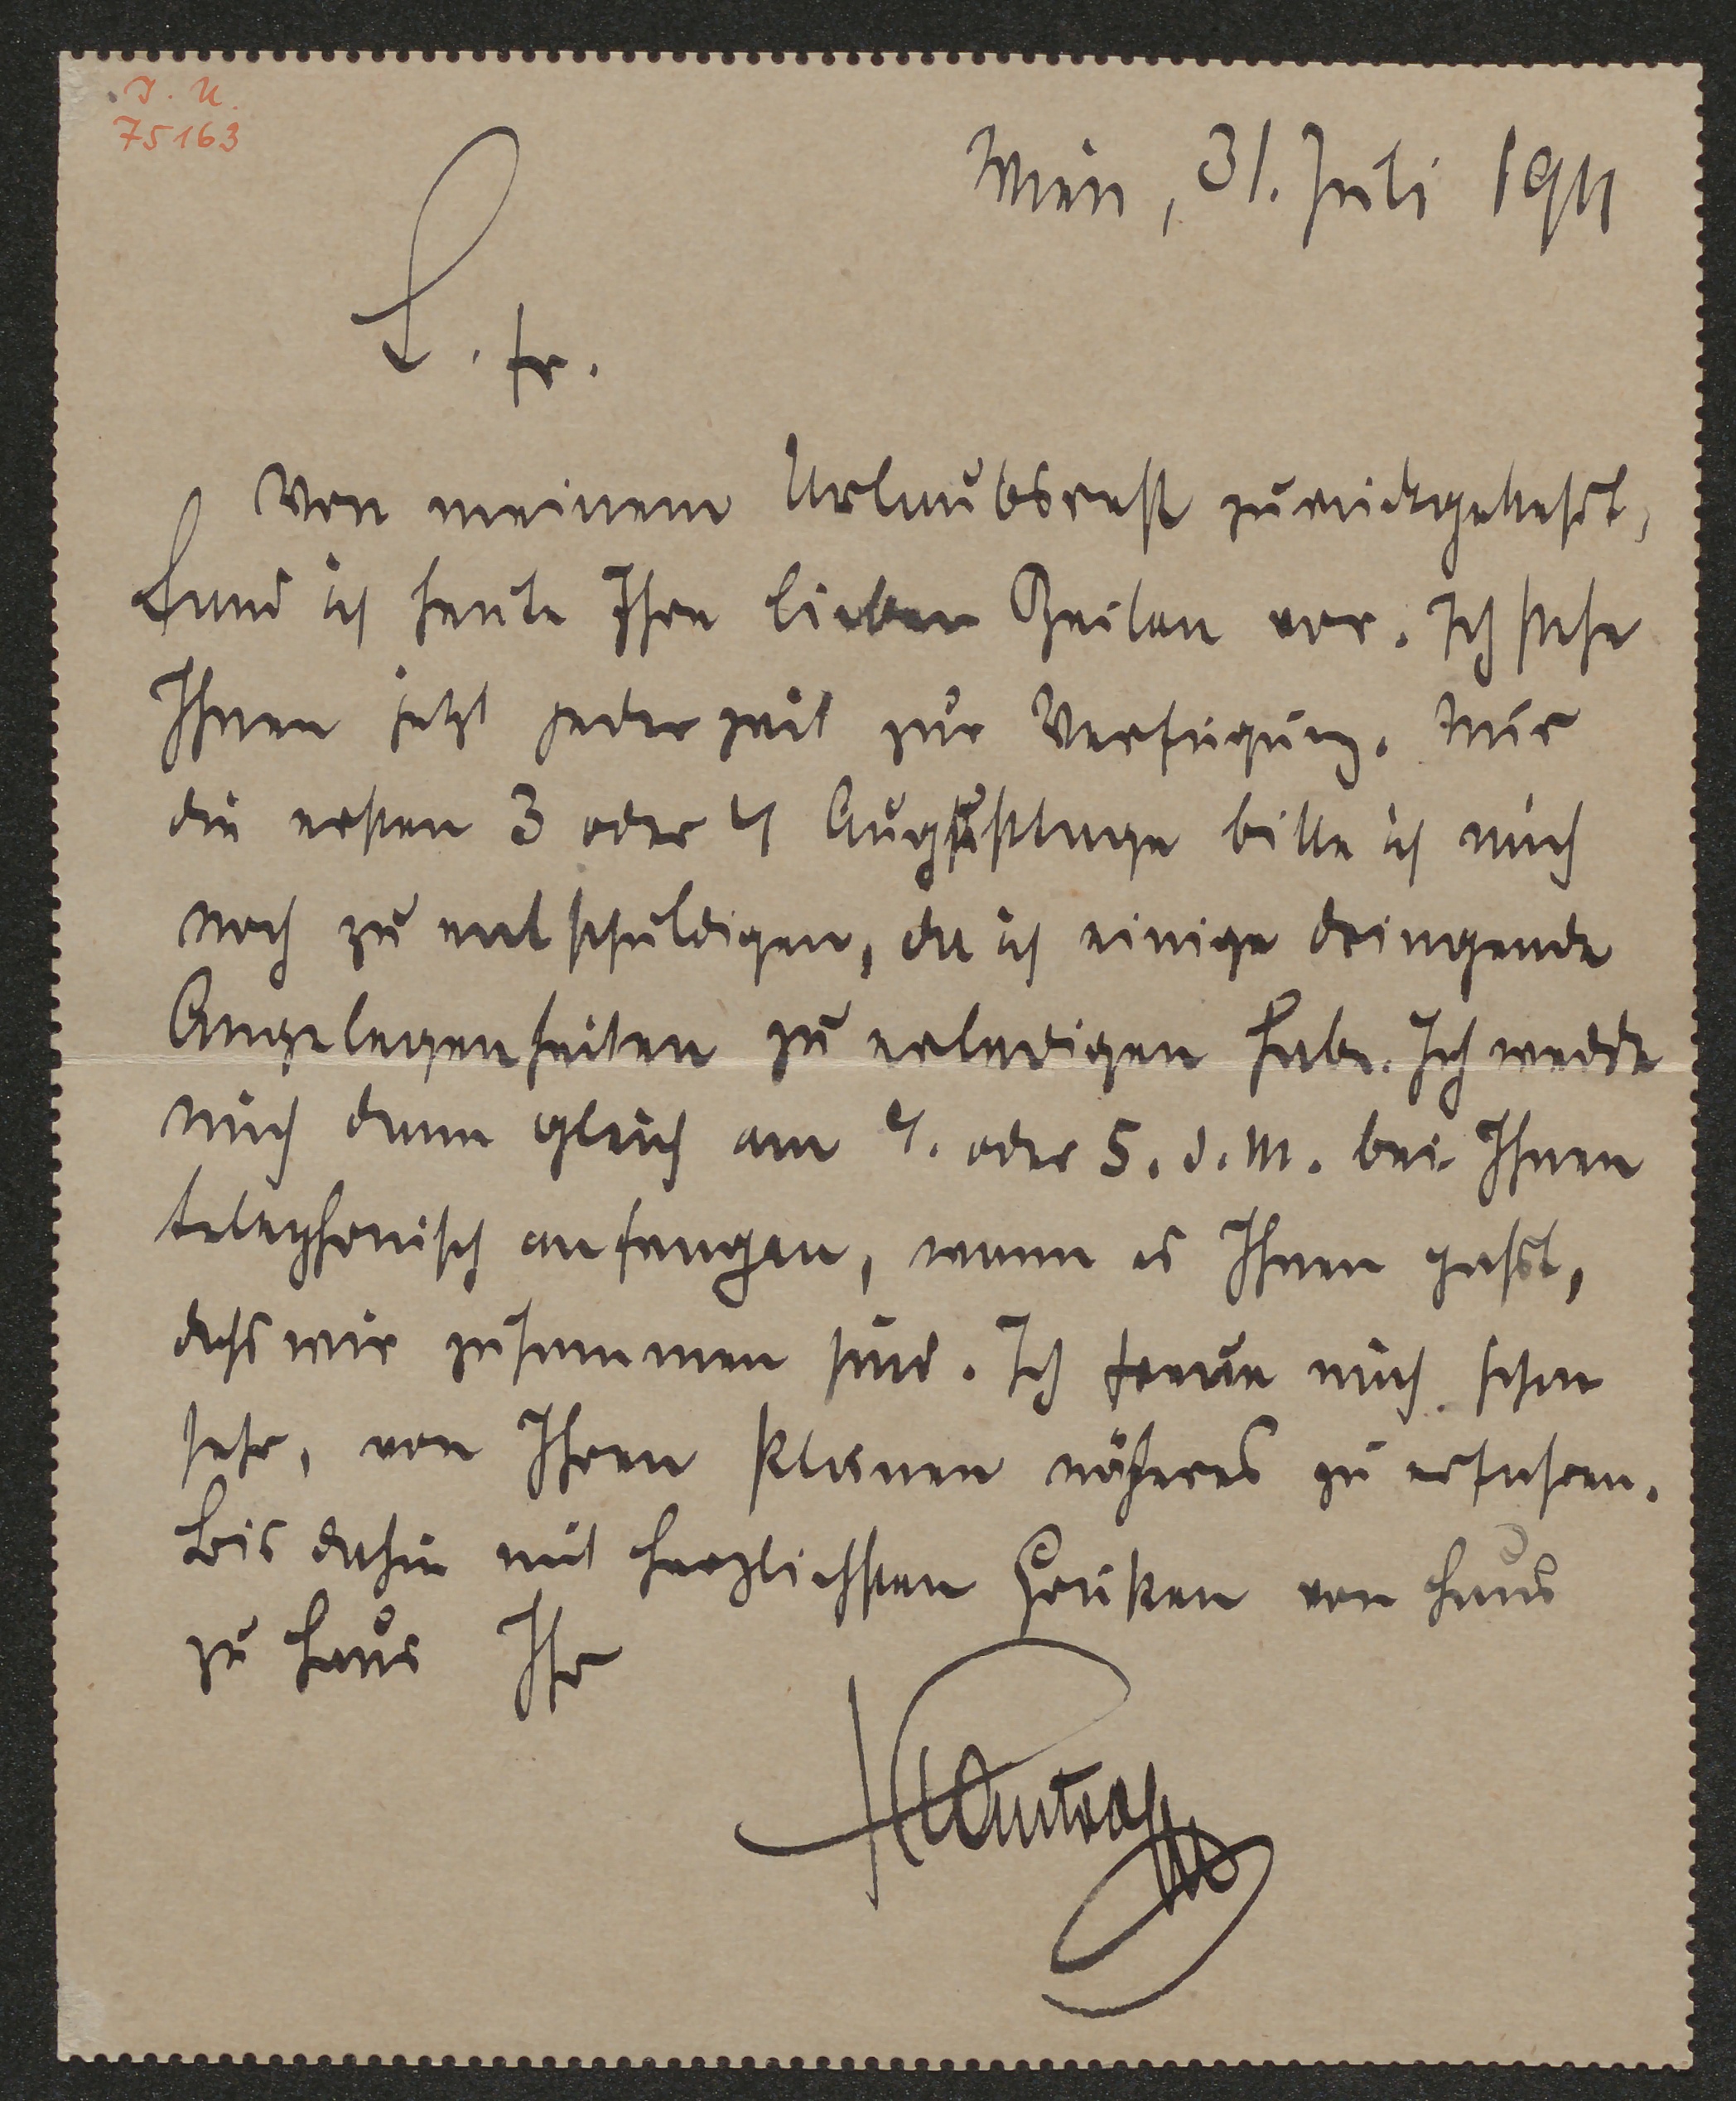 I. N.
75163
Wien, 31. Juli 1911
L. Fr.
Von meinem Urlaubsrest zurückgekehrt,
fand ich heute Ihre lieben Zeilen vor. Ich stehe
Ihnen jetzt jederzeit zur Verfügung. Nur
die ersten 3 oder 4 Augusttage bitte ich mich
noch zu entschuldigen, da ich einige dringende
Angelegenheiten zu erledigen habe. Ich werde
mich dann gleich am 4. oder 5. d. M. bei Ihnen
telephonisch anfragen, wann es Ihnen passt,
dass wir zusammen sind. Ich freue mich schon
sehr, von Ihren Plänen näheres zu erfahren.
Bis dahin mit herzlichsten Grüßen von Haus
zu Haus Ihr